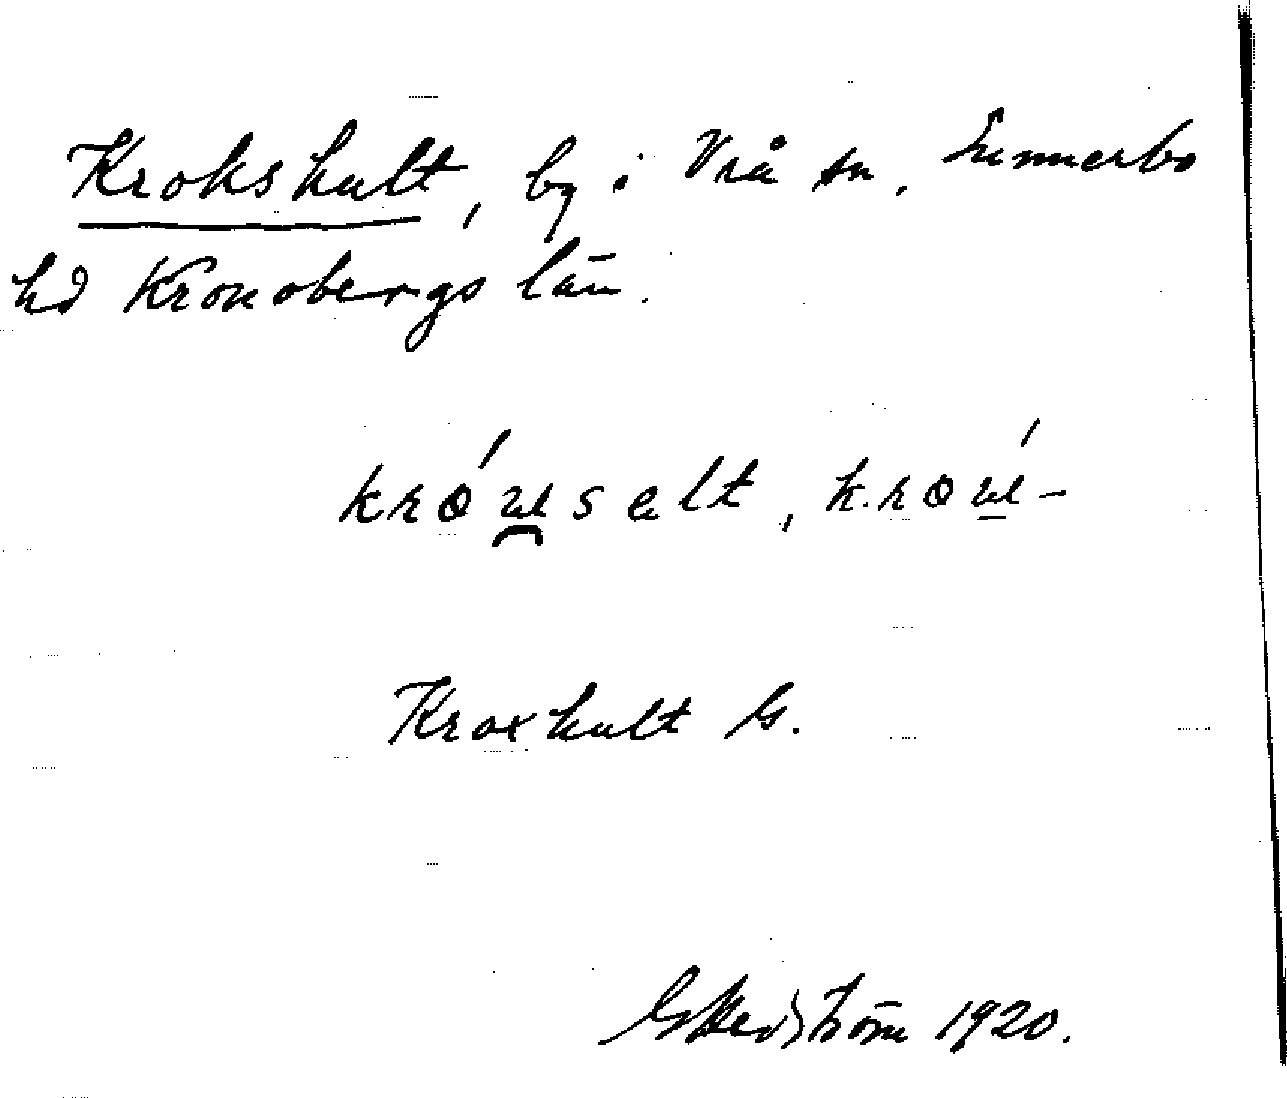 Krokshult, by i Vrå sn, Sunnerbo
hd Kronobergs län.
Kroxhult G.
GHedström 1920.